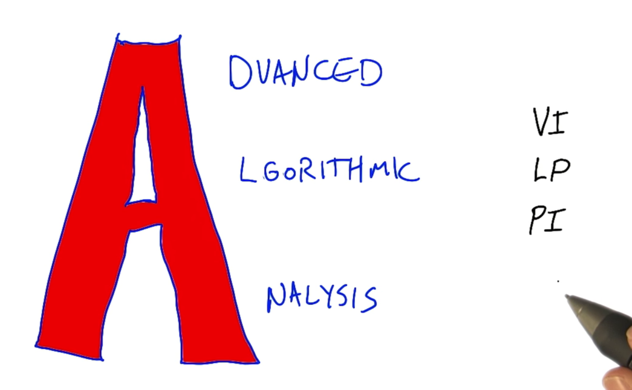 A
DVANCED
LGORITHMIC
NALYSIS
VI
LP
PI